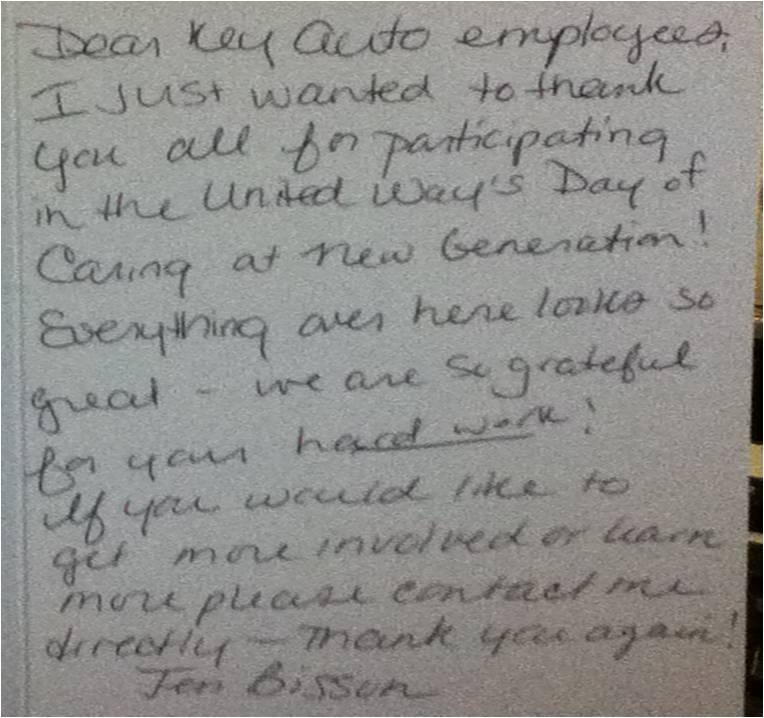 Dear Key Auto employees,
I Just wanted to thank
you all for participating
in the United Way's Day of
Caring at New Generation!
Everything over here looks so
great - we are so grateful
for your hard work!
If you would like to
get more involved or learn
more please contact me
directly - Thank you again!
Jen Bisson